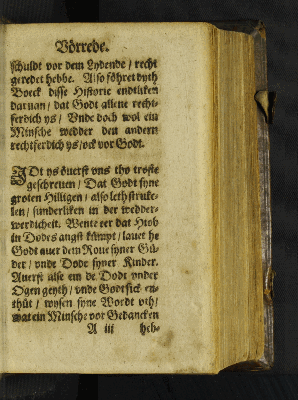 Vörrede.
schuldt vor dem Lydende / recht
geredet hebbe. Also föhret dyth
Boeck disse Historie endtliken
daruan / dat Godt allene recht-
ferdich ys / Vnde doch wol ein
Minsche wedder den andern
rechtferdich ys / ock vor Godt.
IDt ys öuerst vns tho troste
geschreuen / Dat Godt syne
groten Hilligen / also leth struke-
len / sunderliken in der wedder-
werdicheit. Wente eer dat Hiob
in Dodes angst kümpt / lauet he
Godt auer dem Roue syner Gü-
der / vnde Dode syner Kinder.
Auerst alse em de Dodt vnder
Ogen geyth / vnde Godt sick en-
thüt / wysen syne Wordt vth /
wat ein Minsche vor Gedancken
A iii heb-